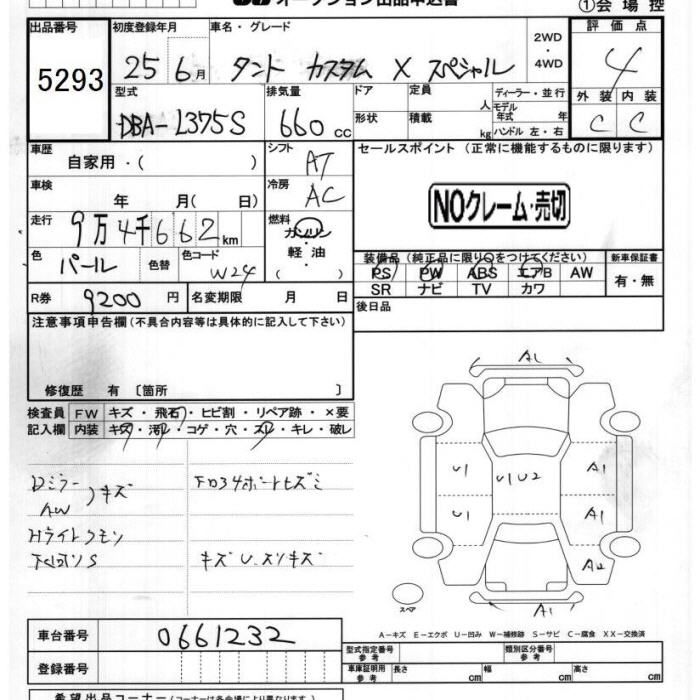 オークション出品申込書
①会場控
出品番号 初度登録年月 車名・グレード 2WD・4WD 評価点
5293 25 6月 タント カスタム X スペシャル 4
型式 排気量 ドア 定員 人 ディーラー・並行 外装 内装
モデル年式 年
DBA-L375S 660 cc 形状 積載 kg ハンドル 左・右 C C
車歴 自家用・( ) シフト AT セールスポイント (正常に機能するものに限ります)
車検 年 月( 日) 冷房 AC
NOクレーム・売切
走行 9万4千662km 燃料 ガソリン 軽油 ( )
色 パール 色替 色コード W24
装備品(純正品に限り○をつけてください) 新車保証書
PS PW ABS エアB AW 有・無
SR ナビ TV カワ
R券 9200円 名変期限 月 日 後日品
注意事項申告欄(不具合内容等は具体的に記入して下さい)
修復歴 有 〔箇所 〕
検査員 FW キズ・飛石・ヒビ割・リペア跡・×要
記入欄 内装 キズ・汚レ・コゲ・穴・スレ・キレ・破レ
Dミラー キズ
AW
Hライトクモリ
キズU スリキズ
A1
U1 U1U2 A1
U1 A1
A2
A1
スペア
A-キズ E-エクボ U-凹み W-補修跡 S-サビ C-腐食 XX-交換済
車台番号 0661232
型式指定番号 参考 類別区分番号 参考
登録番号 車庫証明用 参考 長さ cm 幅 cm 高さ cm
希望出品コーナー(コーナーは各会場により異なります)